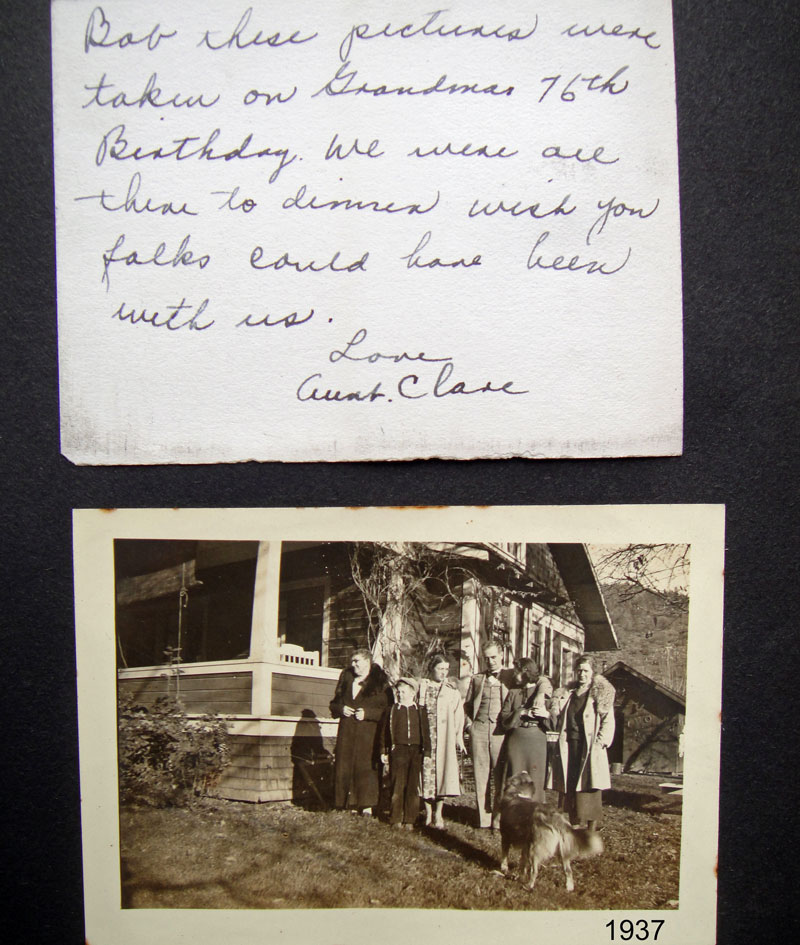 Bob these pictures were
taken on Grandmas 76th
Birthday. We were all
there to dinner wish you
folks could have been
with us.
Love
Aunt. Clare
1937